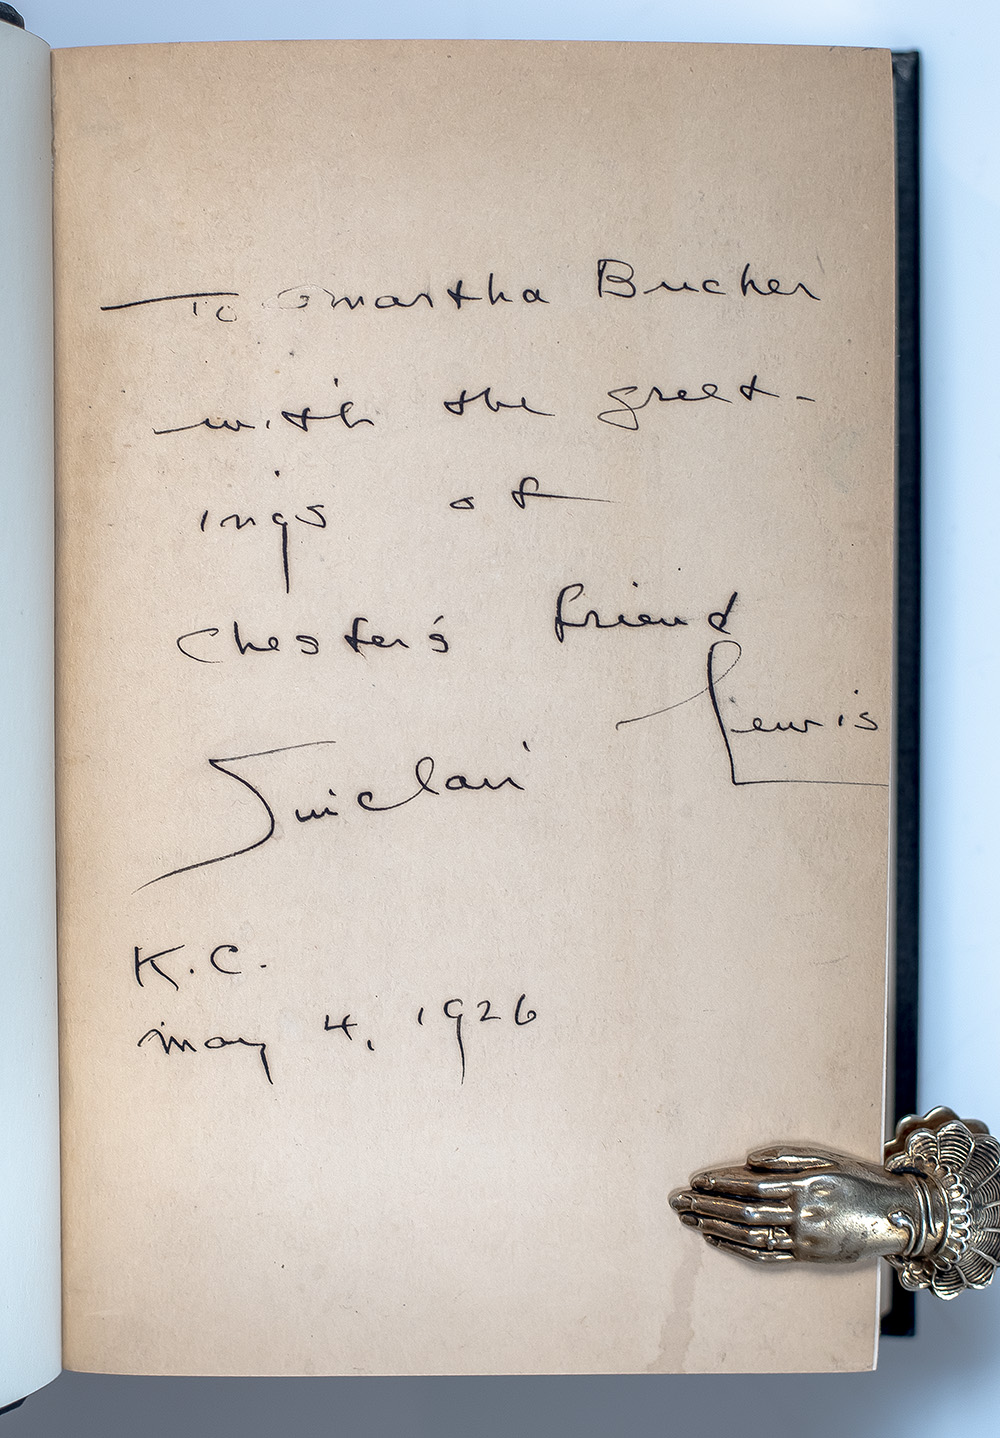 To Martha Bucher
with the greet-
ings of
Chester's friend
Sinclair Lewis
K.C.
May 4, 1926